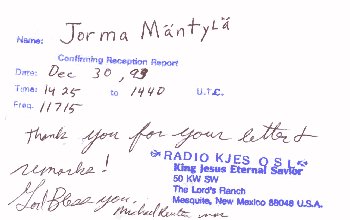 Name: Jorma Mäntylä
Confirming Reception Report
Date: Dec 30, 93
Time: 1425 to 1440 U.T.C.
Freq. 11715
Thank you for your letter &
remarks!
God Bless you.
RADIO KJES QSL
King Jesus Eternal Savior
50 KW SW
The Lord's Ranch
Mesquite, New Mexico 88048 U.S.A.
Michael